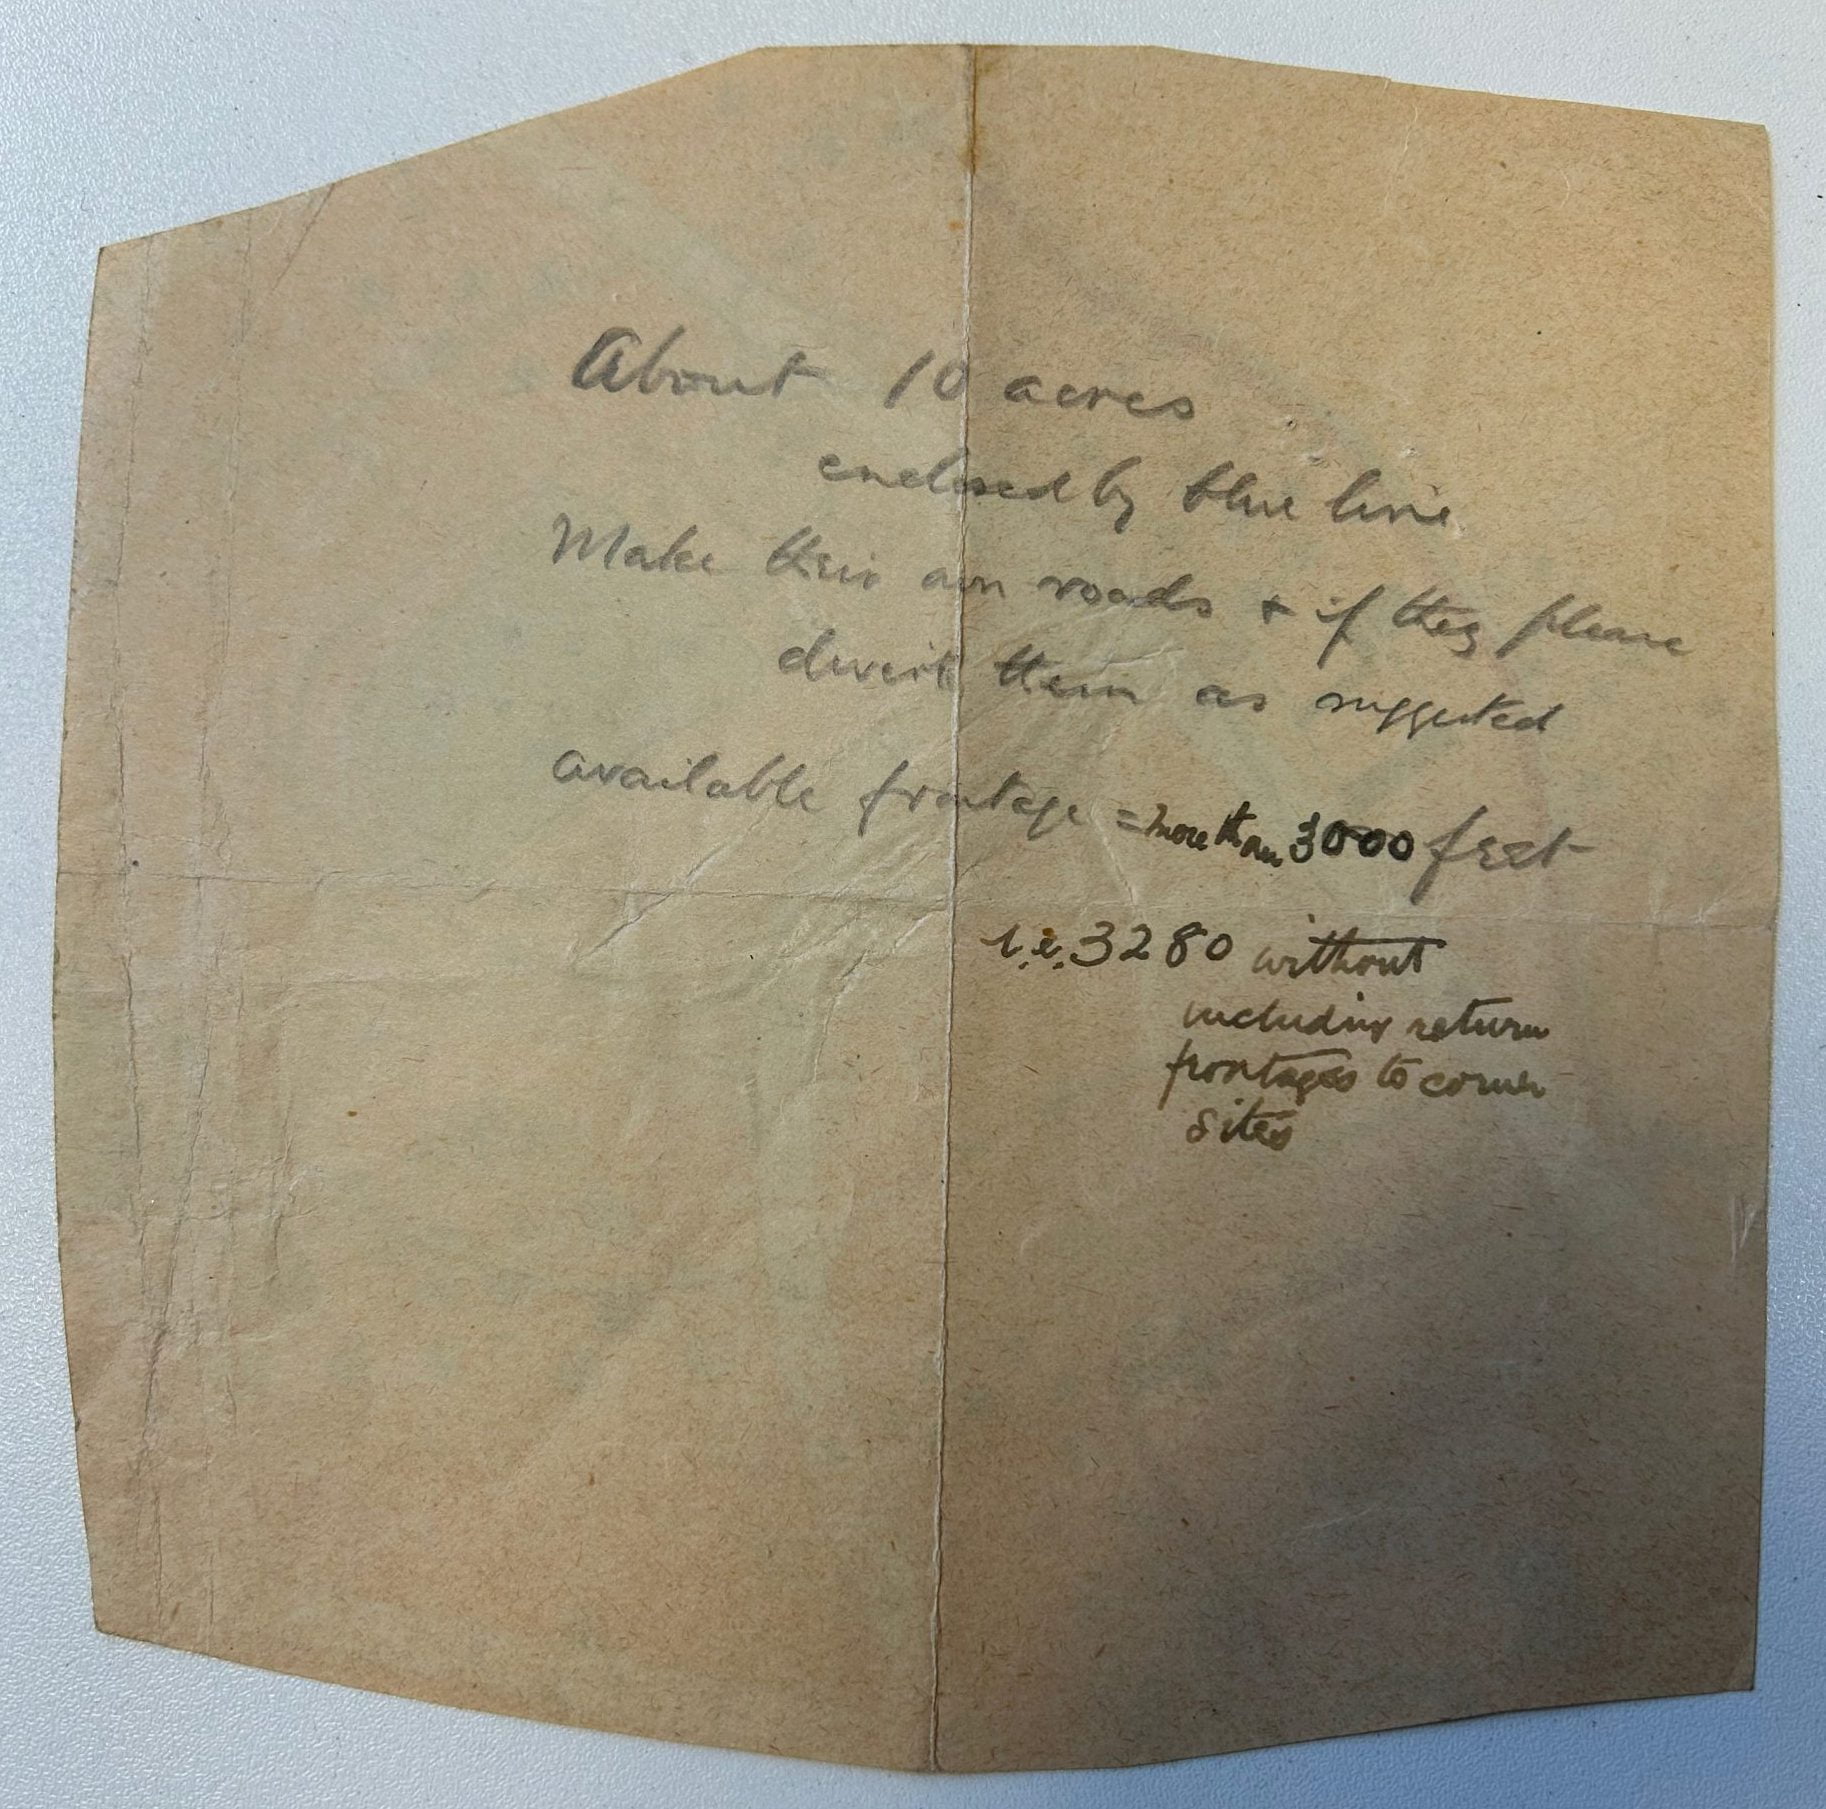 About 10 acres
enclosed by blue line
Make their own roads + if they please
divert them as suggested
available frontage = more than 3000 feet
i.e. 3280 without
including return
frontages to corner
sites